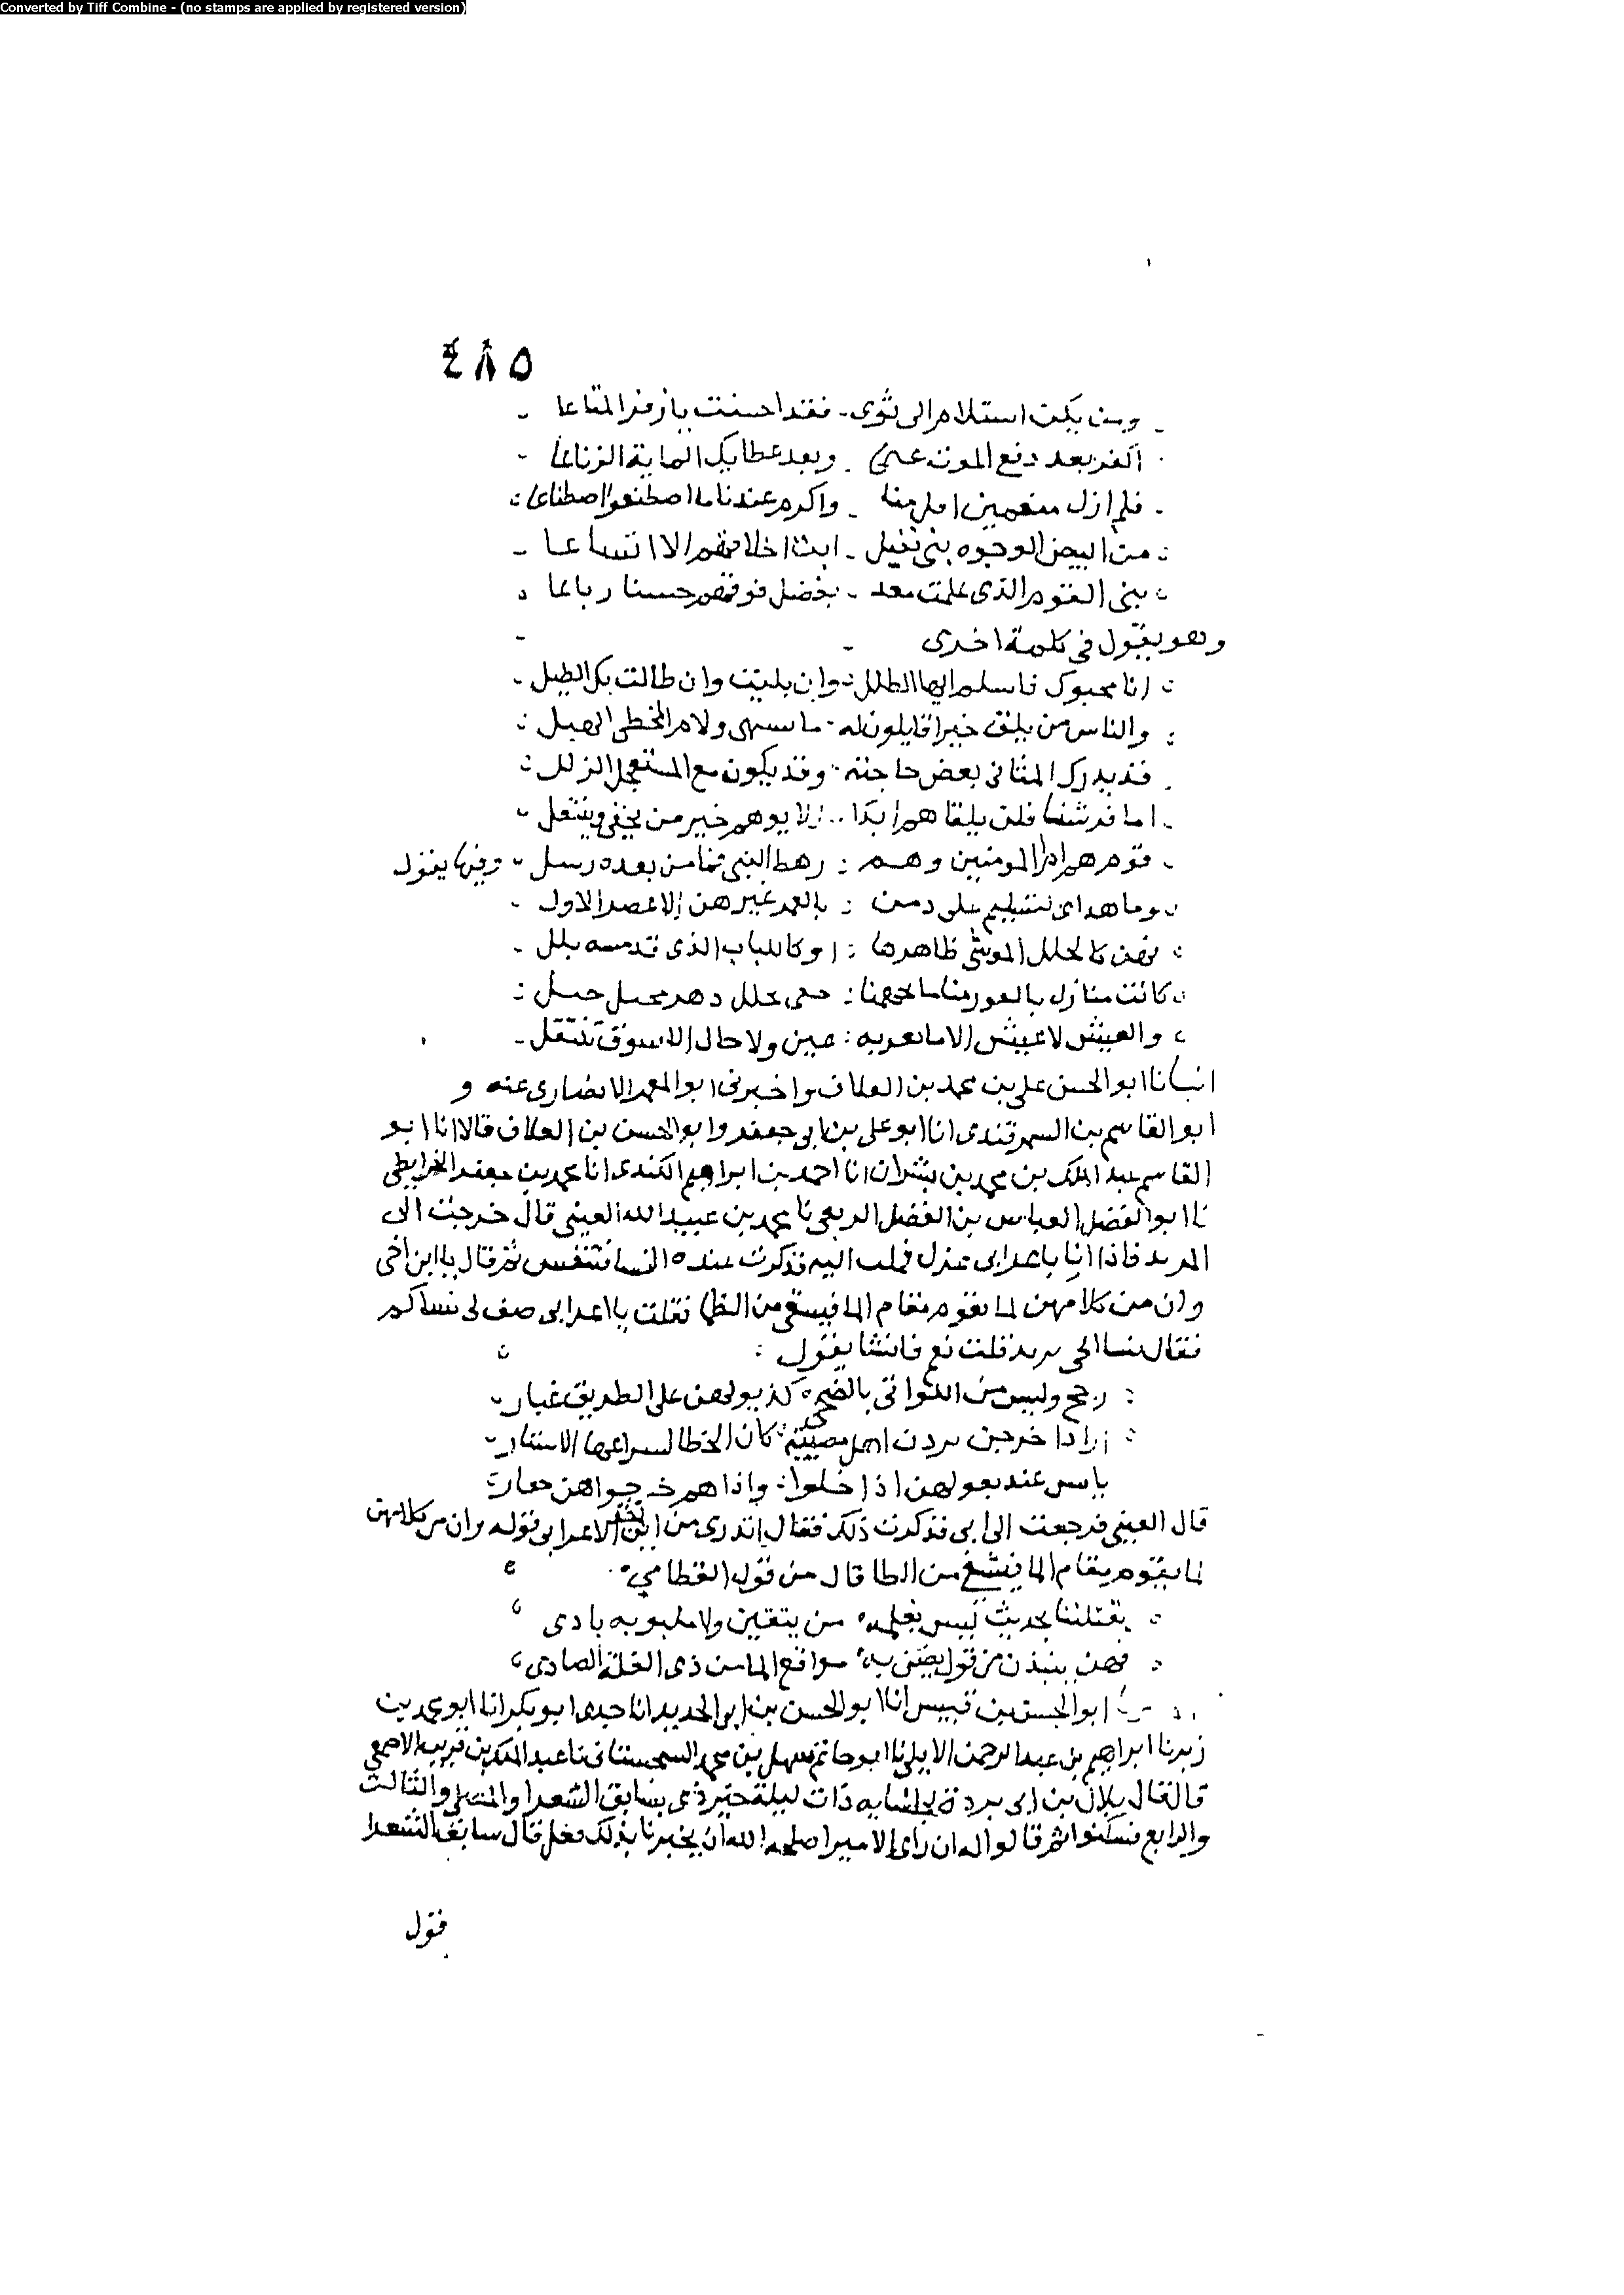 Converted by Tiff Combine - (no stamps are applied by registered version)
٤٨٥
ومن يكن استلام الى ثوى فقد احسنت يا زفر المتاعا
اكفر بعد دفع الموت عنى وبعد عطايك الماية الرتاعا
فلم ار منعمين اقل منا واكرم عندنا ما اصطنعوا اصطناعا
من البيض الوجوه بنى نفيل ابت اخلاقهم الا اتساعا
بنى القوم الذى علمت معد بفضل فوقهم حسنا رباعا
وهو يقول فى كلمة اخرى
انا محيوك فاسلم ايها الطلل وان بليت وان طالت بك الطيل
والناس من يلق خيرا قايلون له ما يشتهى ولام المخطى الهبل
قد يدرك المتانى بعض حاجته وقد يكون مع المستعجل الزلل
اما قريش فلن يلقاهم ابدا الا يوهم خير من يحفى وينتعل
قوم هم امرا المومنين وهم رهط النبى فما من بعده رسل وفيها يقول
وما هداى لتسليم على دمن بالغمر غيرهن الاعصر الاول
فهن كالحلل الموشى ظاهرها او كالكتاب الذى قد مسه بلل
كانت منازل
والعيش لا عيش الا ما تقر به عين ولا حال الا سوف تنتقل
انبانا ابو الحسن على بن محمد بن العلاف واخبرنى ابو المعمر الانصارى عنه و
ابو القاسم بن السمرقندى انا ابو على بن ابى جعفر وابو الحسن بن العلاف قالا انا ابو
القاسم عبد الملك بن محمد بن بشران انا احمد بن ابراهيم الكندى انا محمد بن جعفر الخرايطى
نا ابو الفضل العباس بن الفضل الربعى نا محمد بن عبيد الله العتبى قال خرجت الى
المربد فاذا انا باعرابى غزل فملت اليه فذكرت عنده النسا فتنفس ثم قال يا ابن اخى
وان من كلامهن لما يقوم مقام الما فيشفى من الظما فقلت يا اعرابى صف لى نساكم
فقال نسا الحى تريد قلت نعم فانشا يقول
رجح وليس من اللواتى بالضحى لذيولهن على الطريق غبار
واذا خرجن يردن اهل مصيبة كان الخطا لسراعها الاشبار
يانسن عند بعولهن اذا خلوا واذا هم خرجوا فهن خفار
قال العتبى فرجعت الى ابى فذكرت ذلك فقال اتدرى من اين اخذ الاعرابى قوله وان من كلامهن
لما يقوم مقام الما فيشفى من الظما قال من قول القطامى
يقتلننا بحديث ليس يعلمه من يتقين ولا مكنونه بادى
فهن ينبذن من قول يصبن به مواقع الما من ذى الغلة الصادى
ابو الحسن بن قبيس انا ابو الحسن بن ابى الحديد انا جدى ابو بكر انا ابو محمد بن
زبر نا ابراهيم بن عبد الرحمن الايلى نا ابو حاتم سهل بن محمد السجستانى نا عبد الملك بن قريب الاصمعى
قال قال بلال بن ابى بردة لجلسايه ذات ليلة خبرونى بسابق الشعرا والمصلى والثالث
والرابع فسكتوا ثم قالوا له ان راى الامير اصلحه الله ان يخبرنا بذلك فعل قال سابق الشعرا
فقول